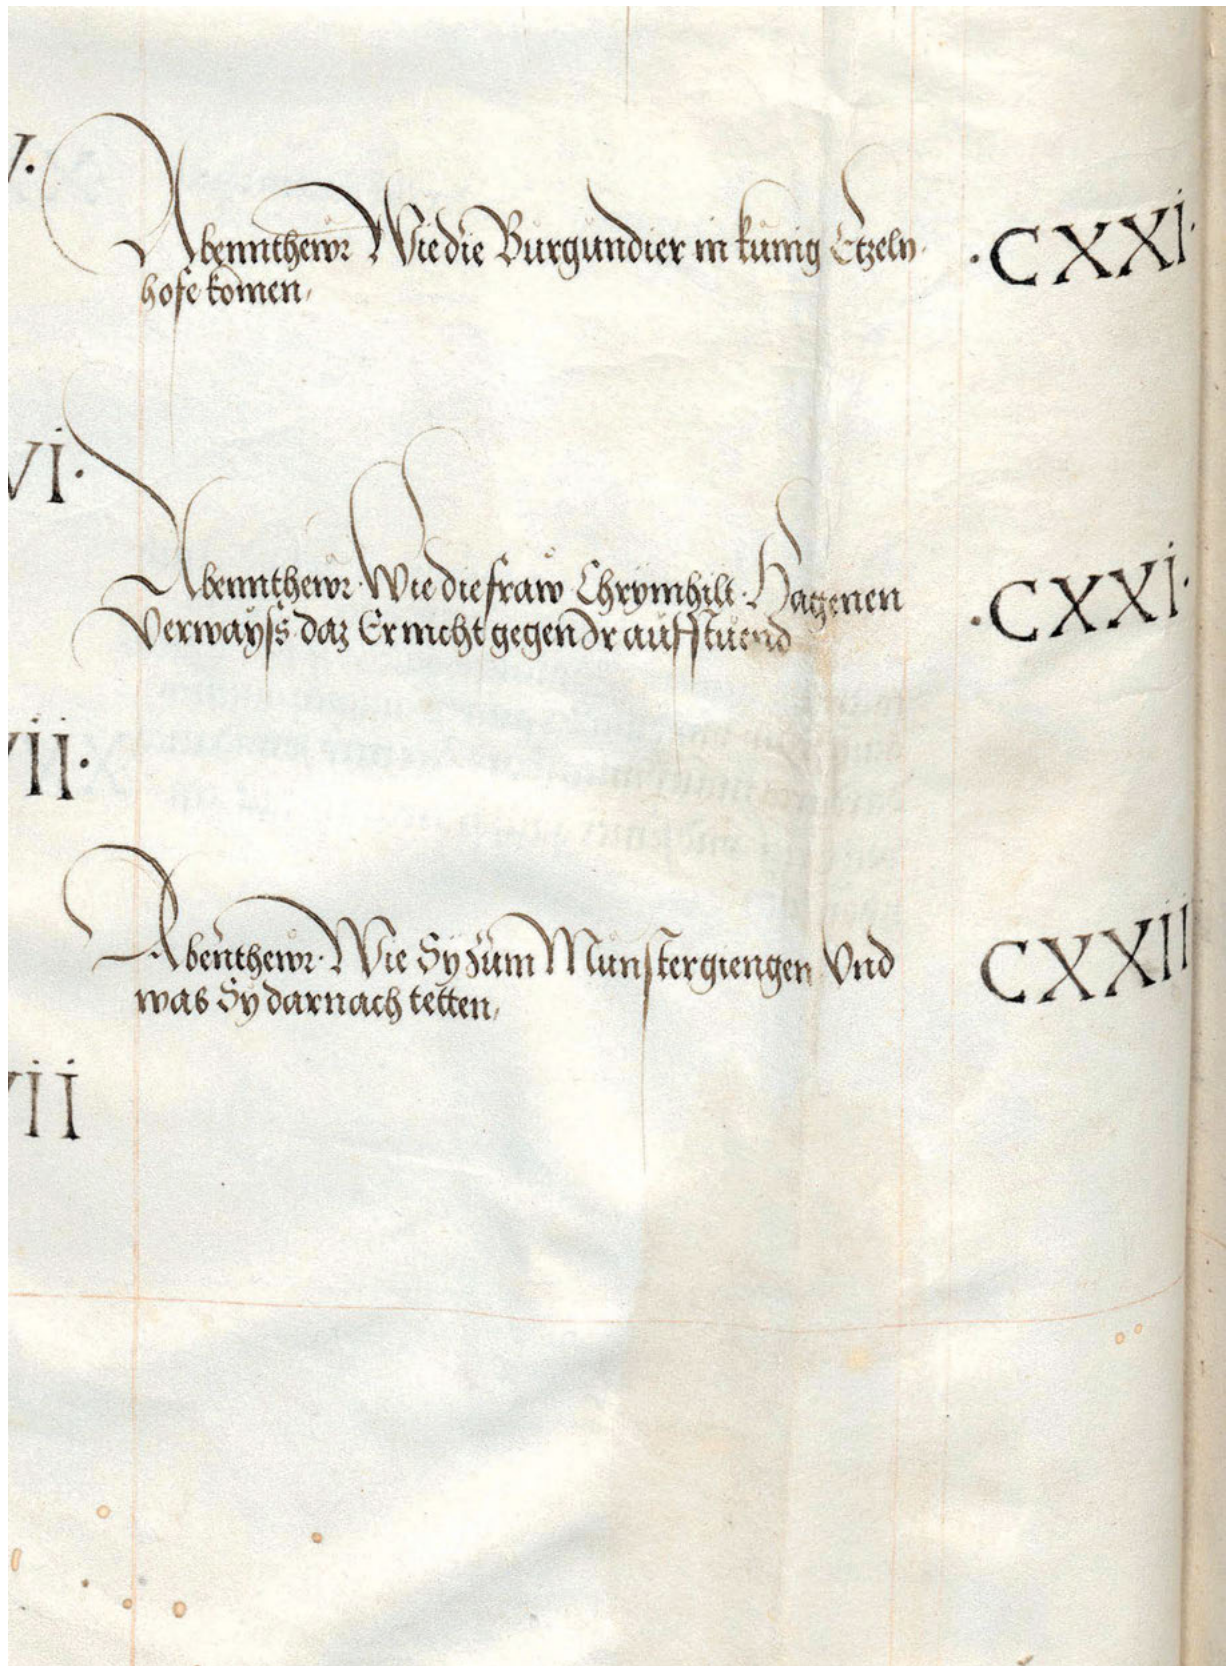 V·
Abennthewr Wie die Burgundier in kunig Etzeln·
hofe komen,
·CXXI·
VI·
Abennthewr· Wie die fraw Chrymhilt· Hagenen
Verwayſs· daz Er nicht gegen Ir aufſtuend
·CXXI·
VII·
Abenthewr· Wie Sy zum Munster giengen Vnd
was Sy darnach tetten,
CXXII
VII